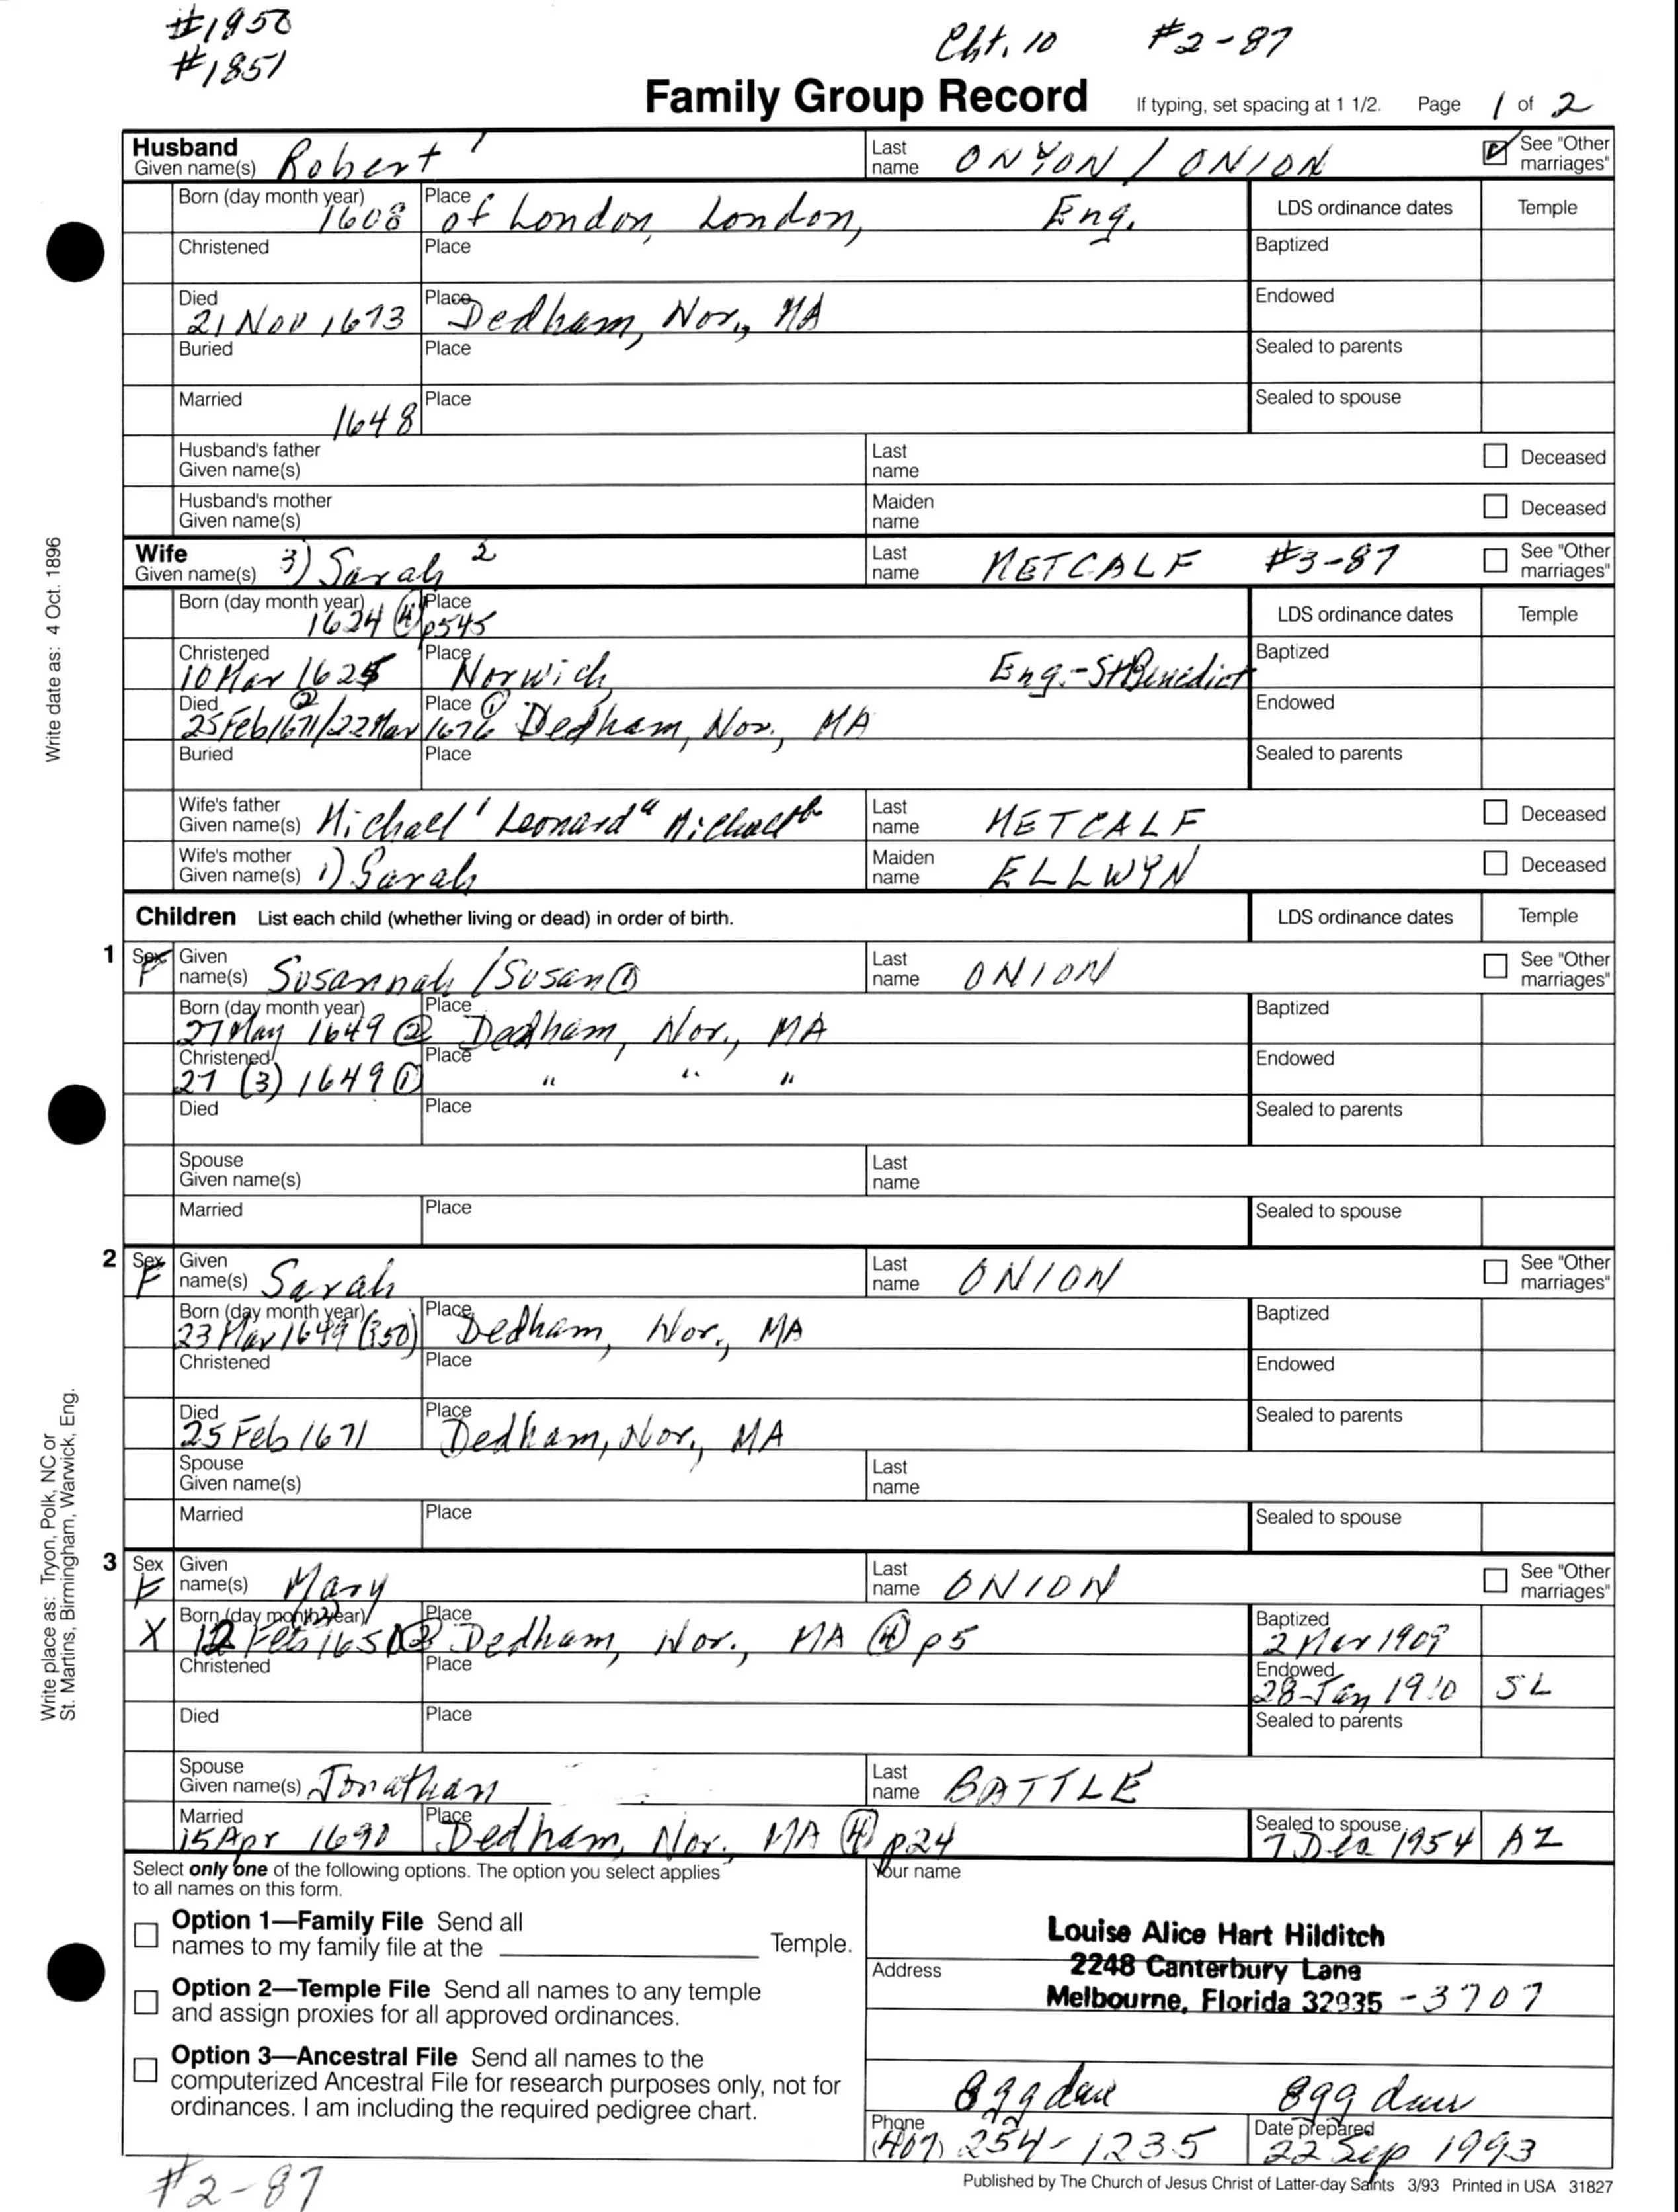 #1950
#1851
Cht. 10 #2-87
Family Group Record If typing, set spacing at 1 1/2. Page 1 of 2
Husband
Given name(s) Robert 1 Last name ONYON / ONION See "Other marriages"
Born (day month year) 1608 Place of London, London, Eng. LDS ordinance dates Temple
Christened Place Baptized
Died 21 Nov 1673 Place Dedham, Nor., MA Endowed
Buried Place Sealed to parents
Married 1648 Place Sealed to spouse
Husband's father Given name(s) Last name Deceased
Husband's mother Given name(s) Maiden name Deceased
Wife
Given name(s) 3) Sarah 2 Last name METCALF #3-87 See "Other marriages"
Born (day month year) 1624 (H) Place p545 LDS ordinance dates Temple
Christened 10 Mar 1625 Place Norwich Eng.-St Benedict Baptized
Died 25 Feb 1671 (2) / 22 Mar 1676 (1) Place Dedham, Nor., MA Endowed
Buried Place Sealed to parents
Wife's father Given name(s) Michael 1 Leonard a Michael b Last name METCALF Deceased
Wife's mother Given name(s) 1) Sarah Maiden name ELLWYN Deceased
Children List each child (whether living or dead) in order of birth. LDS ordinance dates Temple
1 Sex F Given name(s) Susannah /Susan (1) Last name ONION See "Other marriages"
Born (day month year) 27 May 1649 (2) Place Dedham, Nor., MA Baptized
Christened 27 (3) 1649 (1) Place " " " Endowed
Died Place Sealed to parents
Spouse Given name(s) Last name
Married Place Sealed to spouse
2 Sex F Given name(s) Sarah Last name ONION See "Other marriages"
Born (day month year) 23 Mar 1649 (?50) Place Dedham, Nor., MA Baptized
Christened Place Endowed
Died 25 Feb 1671 Place Dedham, Nor., MA Sealed to parents
Spouse Given name(s) Last name
Married Place Sealed to spouse
3 Sex F Given name(s) Mary Last name ONION See "Other marriages"
X Born (day month year) 12 Feb 165 Place Dedham, Nor., MA (H) p5 Baptized 2 Mar 1909
Christened Place Endowed 28 Jan 1910 SL
Died Place Sealed to parents
Spouse Given name(s) Jonathan Last name BATTLE
Married 15 Apr 1690 Place Dedham, Nor., MA (H) p24 Sealed to spouse 7 Dec 1954 AZ
Select only one of the following options. The option you select applies
to all names on this form.
Option 1—Family File Send all
names to my family file at the Temple.
Option 2—Temple File Send all names to any temple
and assign proxies for all approved ordinances.
Option 3—Ancestral File Send all names to the
computerized Ancestral File for research purposes only, not for
ordinances. I am including the required pedigree chart.
Your name
Louise Alice Hart Hilditch
Address 2248 Canterbury Lane
Melbourne, Florida 32935 -3707
8 gg dau 8gg daur
Phone (407) 254-1235 Date prepared 22 Sep 1993
Published by The Church of Jesus Christ of Latter-day Saints 3/93 Printed in USA 31827
#2-87
Write date as: 4 Oct. 1896
Write place as: Tryon, Polk, NC or
St. Martins, Birmingham, Warwick, Eng.